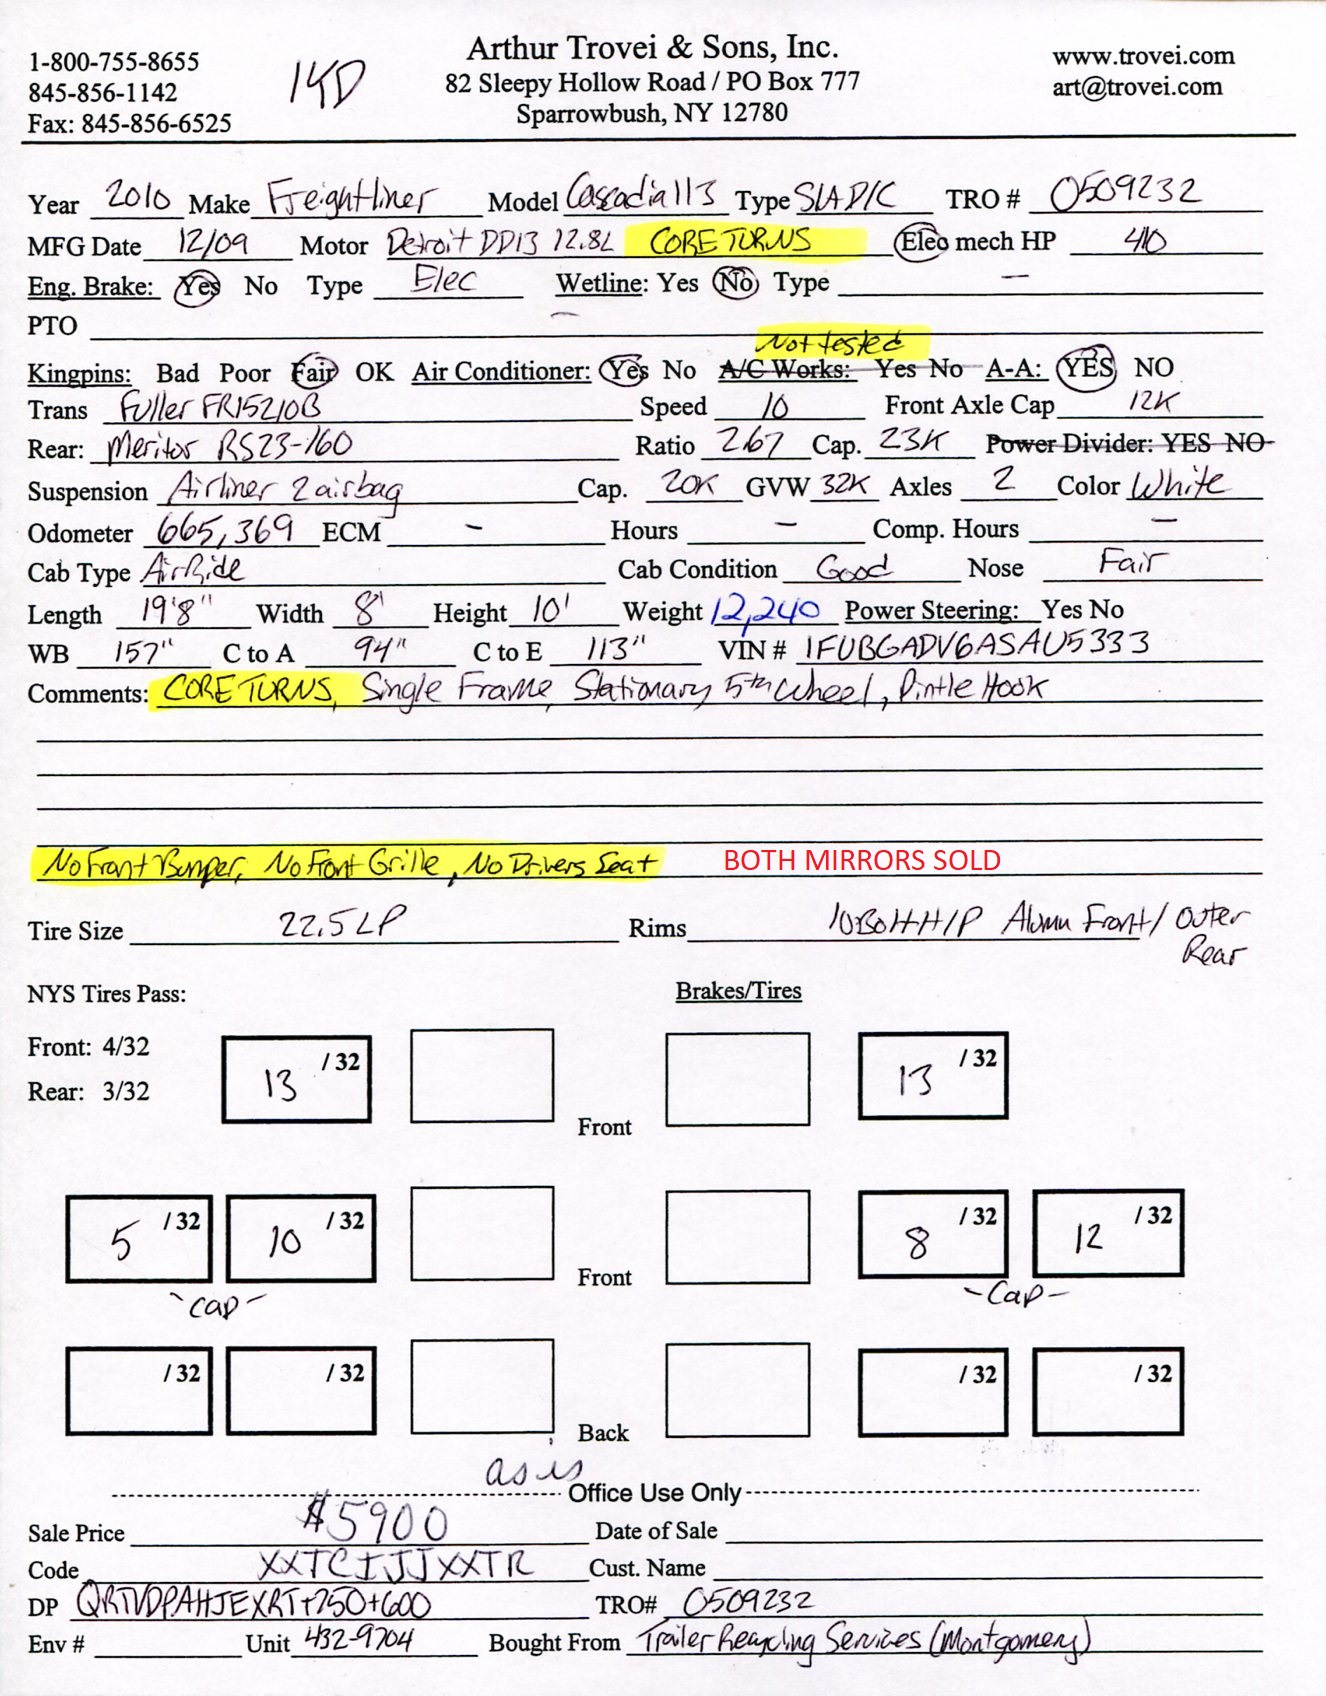 1-800-755-8655
845-856-1142
Fax: 845-856-6525
Arthur Trovei & Sons, Inc.
82 Sleepy Hollow Road / PO Box 777
Sparrowbush, NY 12780
www.trovei.com
art@trovei.com
Year 2010 Make Freightliner Model Cascadia 113 Type SLAD/C TRO # 0509232
MFG Date 12/09 Motor Detroit DD13 12.8L CORE TURNS Elec mech HP 410
Eng. Brake: Yes No Type Elec Wetline: Yes No Type —
PTO —
Not tested
Kingpins: Bad Poor Fair OK Air Conditioner: Yes No A/C Works: Yes No A-A: YES NO
Trans Fuller FR15210B Speed 10 Front Axle Cap 12K
Rear: Meritor RS23-160 Ratio 2.67 Cap. 23K Power Divider: YES NO
Suspension Airliner 2 airbag Cap. 20K GVW 32K Axles 2 Color White
Odometer 665,369 ECM – Hours – Comp. Hours –
Cab Type AirRide Cab Condition Good Nose Fair
Length 19'8" Width 8' Height 10' Weight 12,240 Power Steering: Yes No
WB 157" C to A 94" C to E 113" VIN # 1FUBGADV6ASAU5333
Comments: CORE TURNS, Single Frame, Stationary 5th Wheel, Pintle Hook
No Front Bumper, No Front Grille, No Drivers Seat BOTH MIRRORS SOLD
Tire Size 22.5 LP Rims 10 Bolt H/P Alumn Front/ Outer
Rear
NYS Tires Pass: Brakes/Tires
Front: 4/32
Rear: 3/32
13 /32 13 /32
Front
5 /32 10 /32 8 /32 12 /32
Front
-Cap- -Cap-
/32 /32 /32 /32
Back
as is
Office Use Only
Sale Price $5900 Date of Sale
Code XXTCIJJXXTR Cust. Name
DP QRTVDPAHJEXRT+750+600 TRO# 0509232
Env # Unit 432-9704 Bought From Trailer Recycling Services (Montgomery)